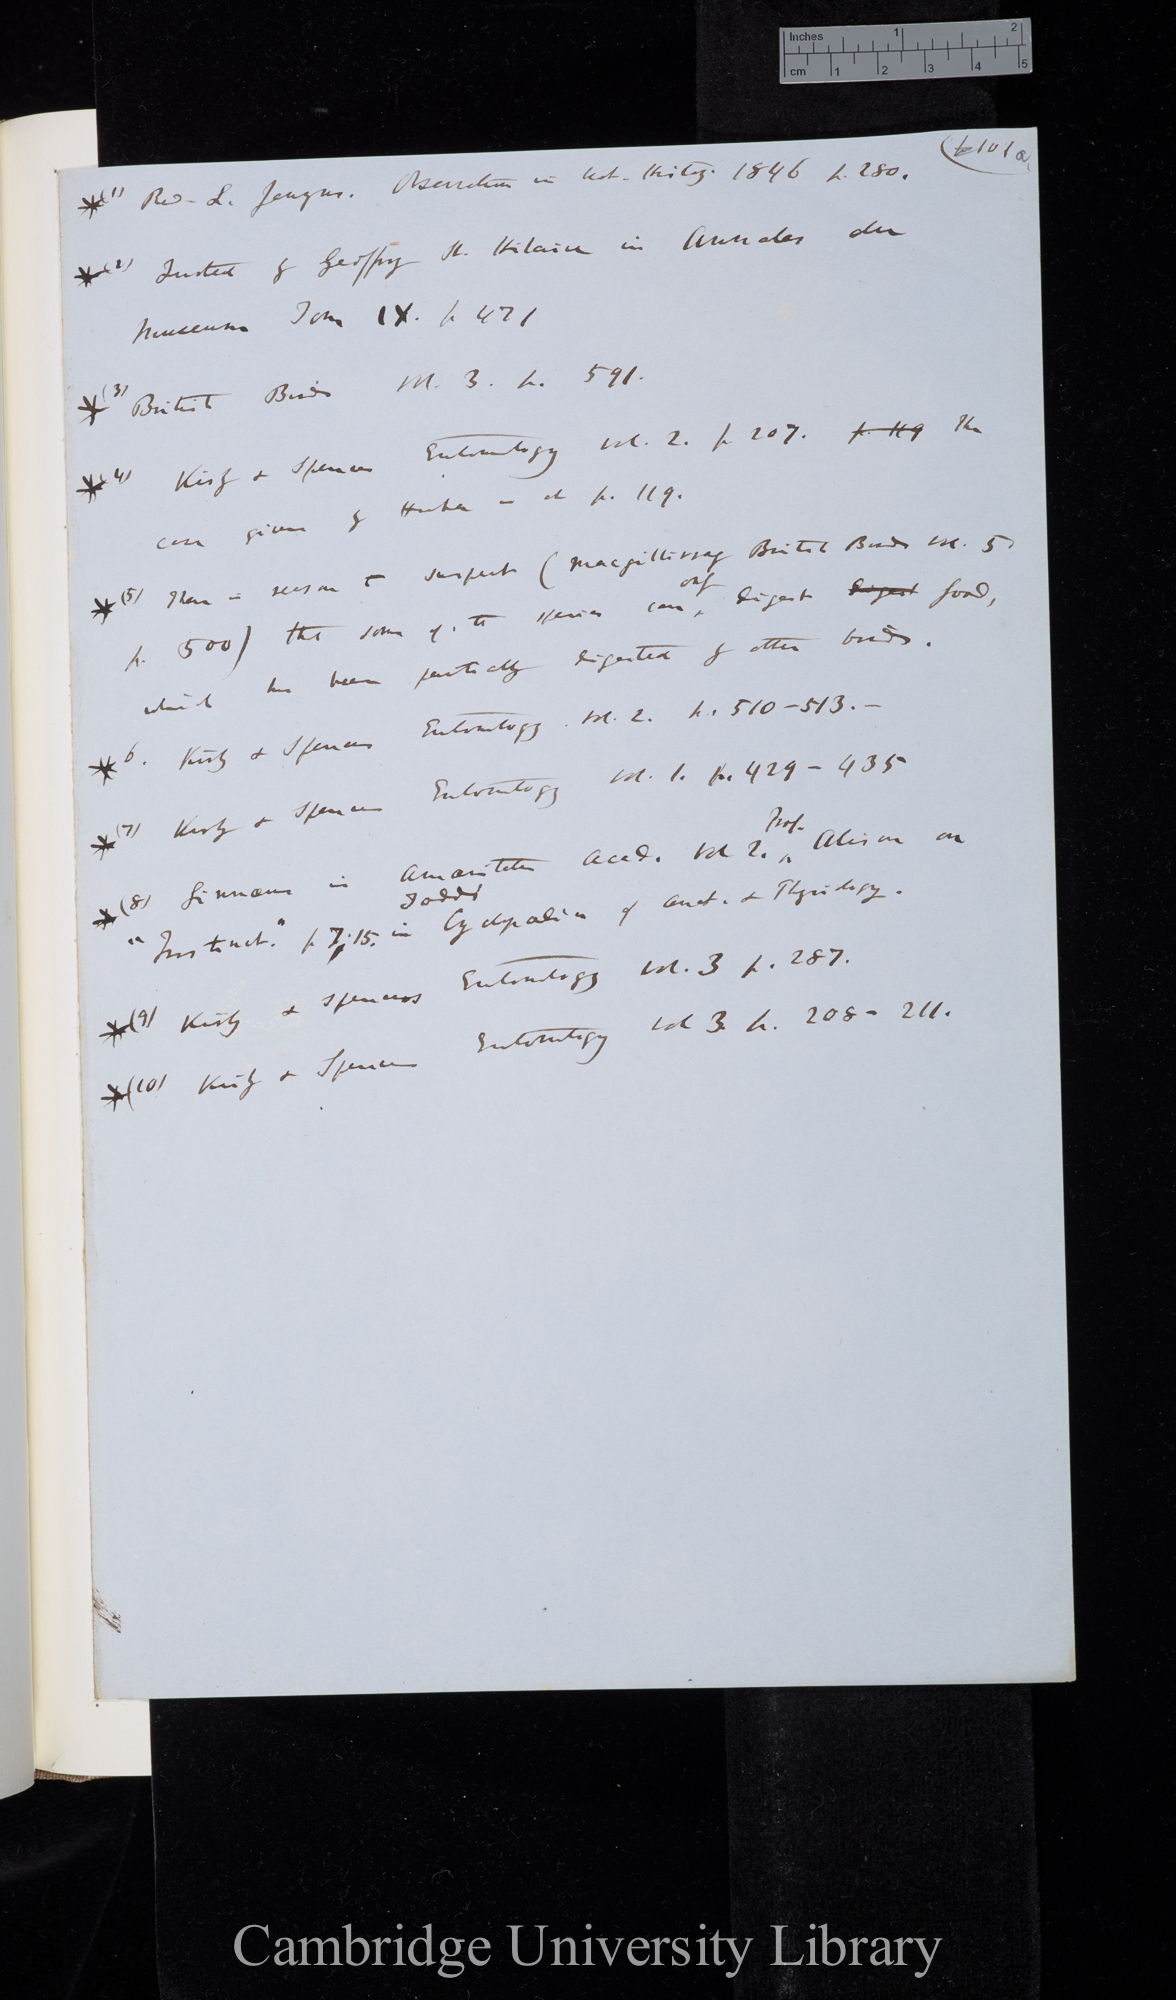 Inches 1 2
cm 1 2 3 4 5
(p 101 a)
*(1) Rev. L. Jenyns. Observations in Nat. History. 1846 p. 280.
*(2) Quoted by Geoffry St. Hilaire in Annales des
Museum Tom IX. p 471
*(3) British Birds Vol. 3. p. 591.
*(4) Kirby & Spences Entomology vol. 2. p 207. p. 119 The
case given by Huber is at p. 119.
*(5) There is reason to suspect (Macgillivray British Birds vol. 5
p. 500) that some of the species can only digest digest food,
which has been partially digested by other birds.
*6. Kirby & Spences Entomology. Vol. 2. p. 510-513.-
*(7) Kirby & Spences Entomology vol. 1. p. 429-435
*(8) Linnaeus in Amœnitates Acad. Vol 2. Prof. Alison on
"Instinct." p 15. in Todds Cyclopædia of Anat. & Physiology.
*(9) Kirby & Spences Entomology vol. 3 p. 287.
*(10) Kirby & Spences Entomology vol 3. p. 208-211.
Cambridge University Library